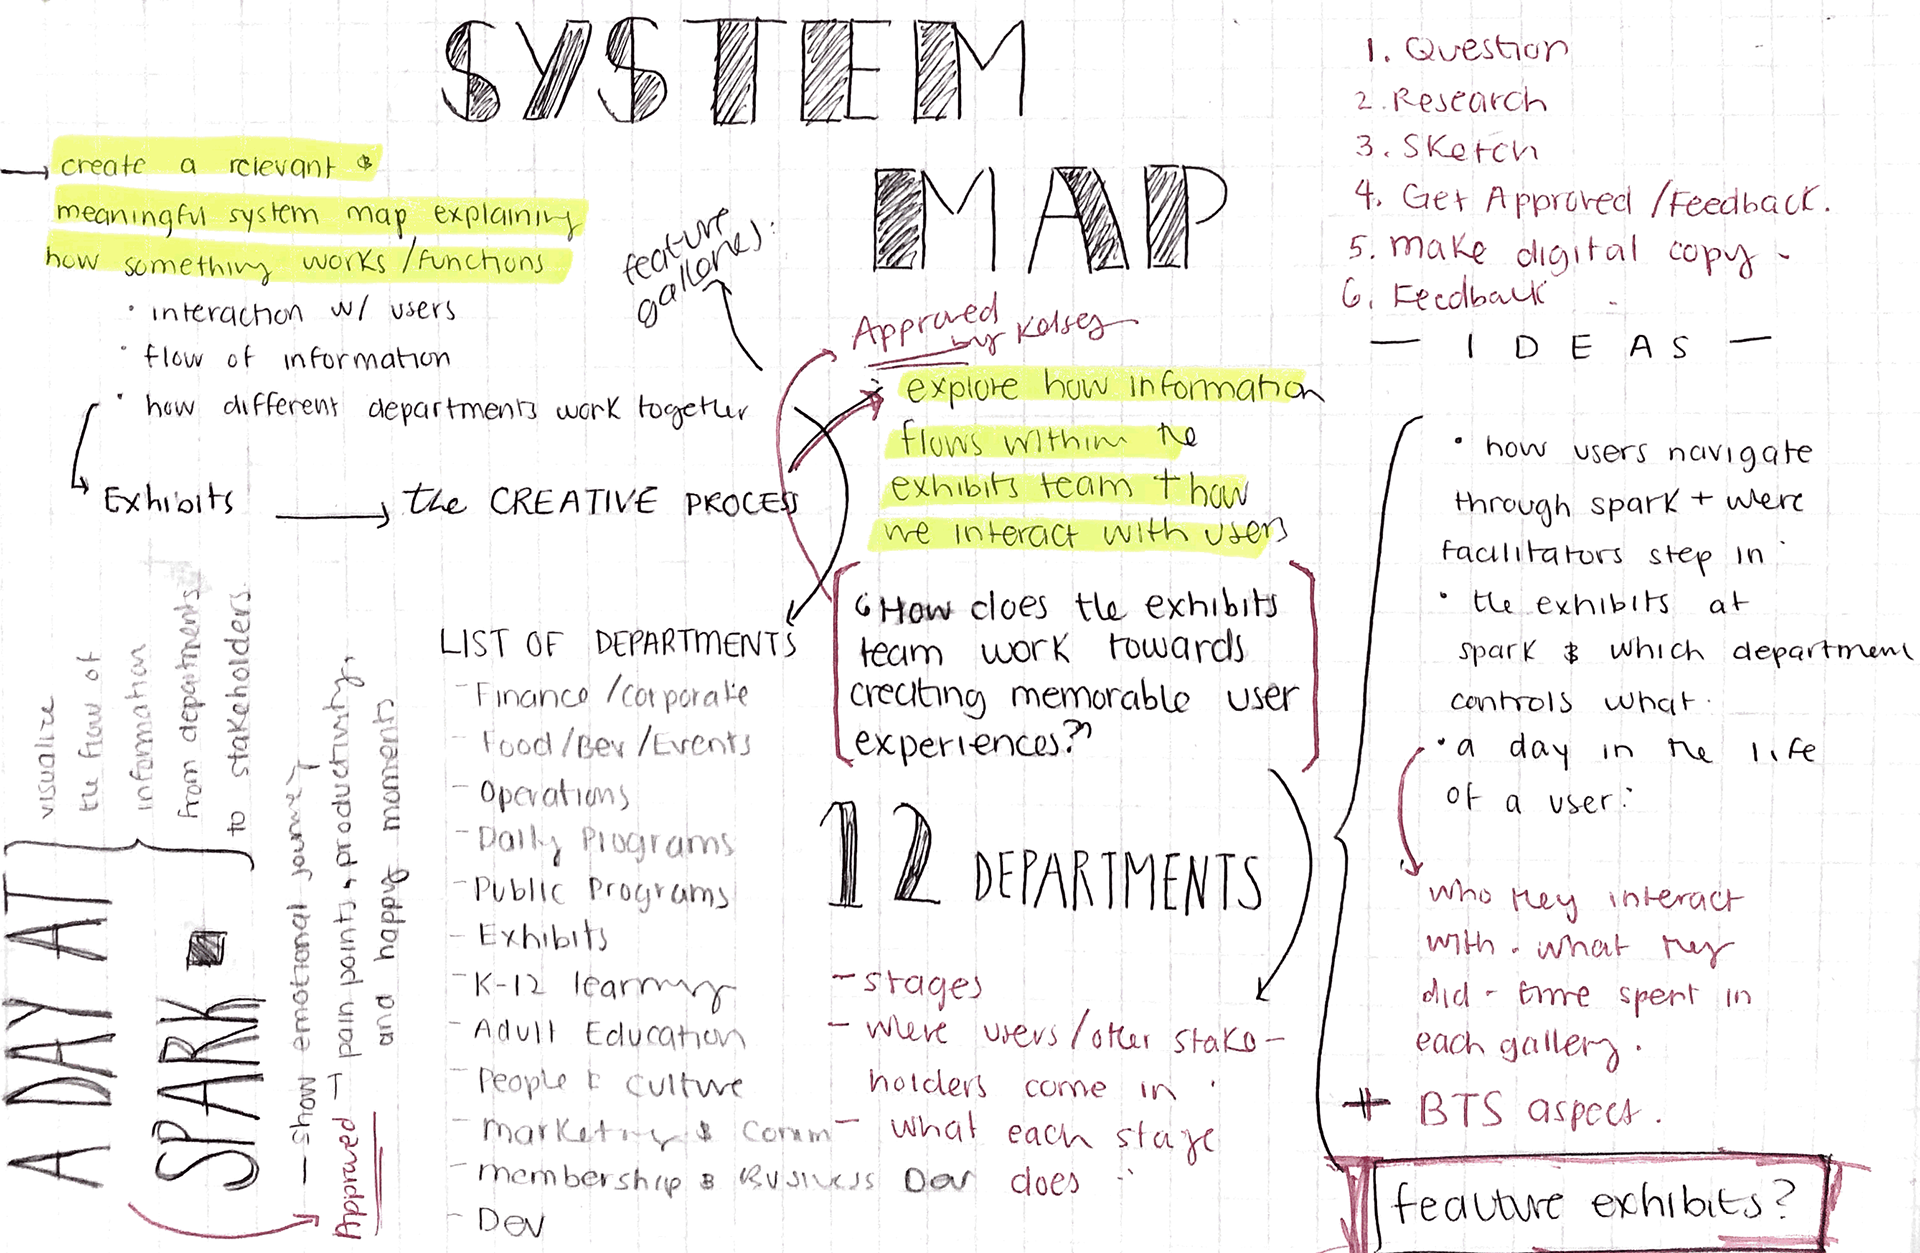 SYSTEM
MAP
→ create a relevant &
meaningful system map explaining
how something works/functions
• interaction w/ users
• flow of information
• how different departments work together
Exhibits → the CREATIVE PROCESS
feature
galleries:
Approved
by Kelsey
explore how information
flows within the
exhibits team + how
we interact with users
"How does the exhibits
team work towards
creating memorable user
experiences?"
12 DEPARTMENTS
- stages
- where users/other stake-
holders come in.
- what each stage
does
LIST OF DEPARTMENTS
- Finance/corporate
- Food/Bev/Events
- Operations
- Daily Programs
- Public Programs
- Exhibits
- K-12 learning
- Adult Education
- People & culture
- marketing & comm
- membership & Business Dev
- Dev
A DAY AT
SPARK.
visualize
the flow of
information
from departments
to stakeholders.
- show emotional journey
Approved → pain points, productivity,
and happy moments
1. Question
2. Research
3. Sketch
4. Get Approved/Feedback.
5. make digital copy.
6. Feedback
— IDEAS —
• how users navigate
through spark + were
facilitators step in.
• the exhibits at
spark & which department
controls what.
• a day in the life
of a user:
who they interact
with. what they
did - time spent in
each gallery.
+ BTS aspect.
feauture exhibits?